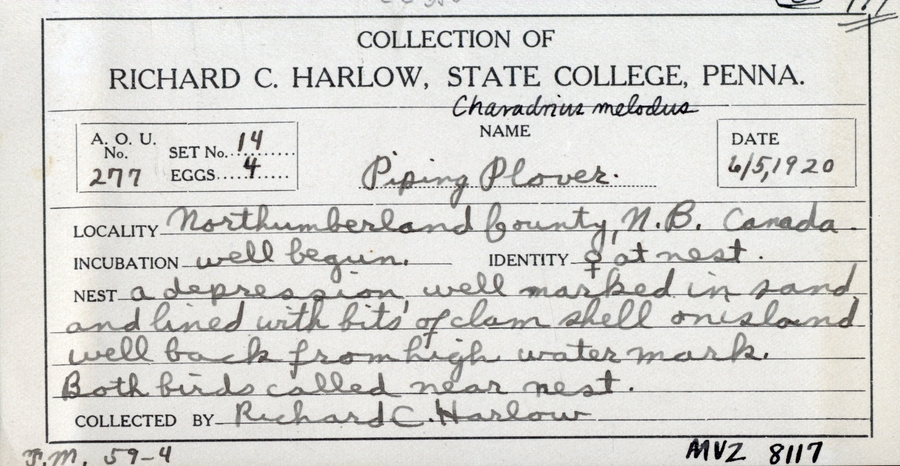 COLLECTION OF
RICHARD C. HARLOW, STATE COLLEGE, PENNA.
Charadrius melodus
A. O. U. No. 277 SET No. 14 EGGS 4 NAME Piping Plover. DATE 6/5, 1920
LOCALITY Northumberland County, N.B. Canada.
INCUBATION well begun. IDENTITY ♀ at nest.
NEST a depression, well marked in sand
and lined with bits of clam shell on island
well back from high water mark.
Both birds called near nest.
COLLECTED BY Richard C. Harlow
P.M. 59-4 MVZ 8117